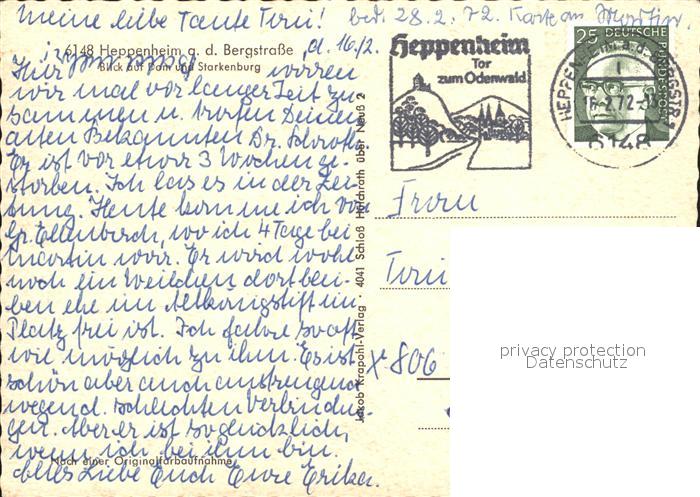 meine liebe Tante Trni! bed. 28.2.72. Karte an Martin.
6148 Heppenheim a. d. Bergstraße, d. 16/2.
Blick auf Dom und Starkenburg
Hier waren
wir mal vor langer Zeit zu-
sammen u. trafen Deinen
alten Bekannten Dr. Schroth.
Er ist vor etwa 3 Wochen ge-
storben. Ich las es in der Zei-
tung. Heute komme ich von
Gr. Ellenbach, wo ich 4 Tage bei
Martin war. Er wird wohl
noch ein Weilchen dort blei-
ben ehe im Altkönigstift ein
Platz frei ist. Ich fahre so oft
wie möglich zu ihm. Es ist
schön aber auch anstrengend
wegen d. schlechten Verbindun-
gen. Aber er ist so glücklich,
wenn ich bei ihm bin.
Nach einer Originalfarbaufnahme
Alles Liebe Euch Eure Erika.
Jakob Krapohl-Verlag · 4041 Schloß Hülchrath über Neuß 2
Heppenheim
Tor
zum Odenwald
25 DEUTSCHE
BUNDESPOST
HEPPENHEIM a.d. BERGSTR.
1
16.-2.72.-13
6148
Frau
X 806
privacy protection
Datenschutz